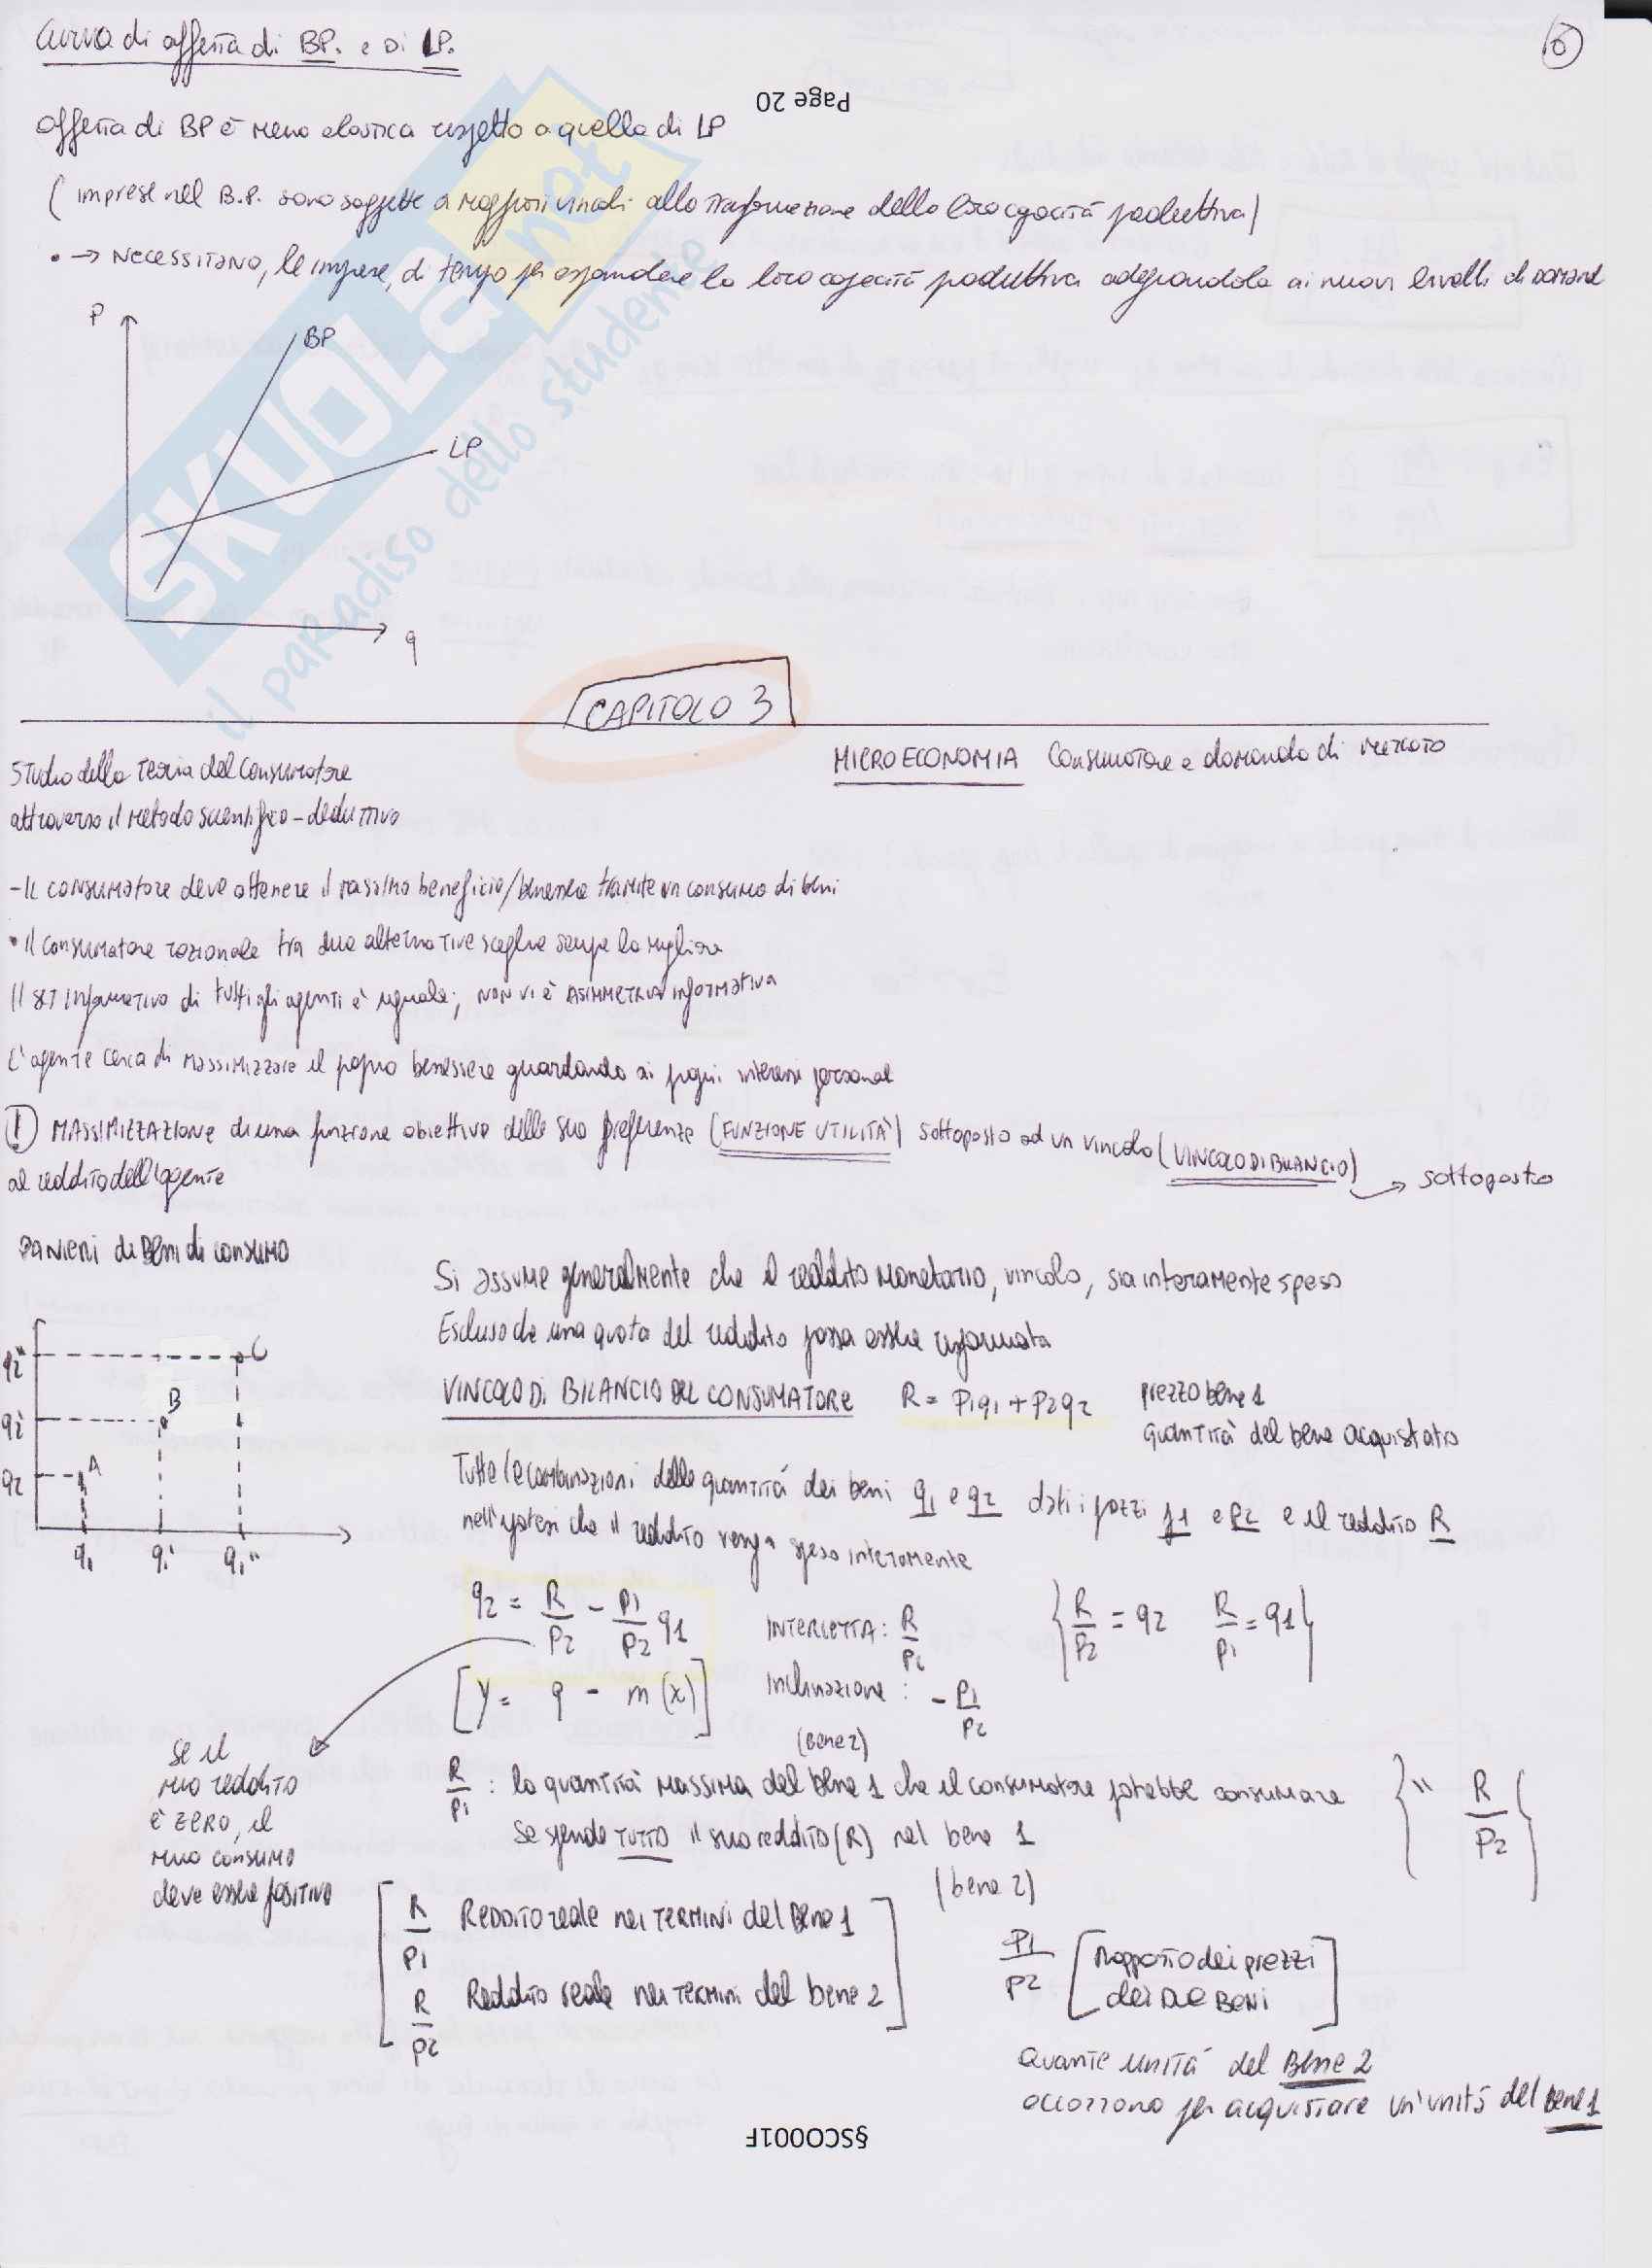 Curva di offerta di BP. e di LP.
6
Page 20
offerta di BP è meno elastica rispetto a quella di LP
(imprese nel B.P. sono soggette a maggiori vincoli allo trasformazione dello loro capacità produttiva)
• → NECESSITANO, le imprese, di tempo per espandere la loro capacità produttiva adeguandola ai nuovi livelli di domand
P
BP
LP
q
SKUOLA.net
il paradiso dello studente
CAPITOLO 3
MICROECONOMIA Consumatore e domanda di mercato
Studio della Teoria del Consumatore
attraverso il metodo scientifico-deduttivo
- Il consumatore deve ottenere il massimo beneficio/benessere tramite un consumo di beni
• Il consumatore razionale tra due alternative sceglie sempre la migliore
Il set informativo di tutti gli agenti è uguale; NON VI è ASIMMETRIA informativa
L'agente cerca di massimizzare il proprio benessere guardando ai propri interessi personal
! MASSIMIZZAZIONE di una funzione obiettivo delle sue preferenze (FUNZIONE UTILITÀ) sottoposto ad un vincolo (VINCOLO DI BILANCIO) → sottoposto
al reddito dell'agente
PANIERI di Beni di consumo
q2" C
q2' B
q2 A
q1 q1' q1"
Si assume generalmente che il reddito monetario, vincolo, sia interamente speso
Escluso che una quota del reddito possa essere risparmiata
VINCOLO DI BILANCIO DEL CONSUMATORE R = P1q1 + P2q2 prezzo bene 1
quantità del bene acquistato
Tutte le combinazioni delle quantità dei beni q1 e q2 dati i prezzi p1 e p2 e il reddito R
nell'ipotesi che il reddito venga speso interamente
q2 = R/P2 - P1/P2 q1
INTERCETTA: R/P2
{R/P2 = q2 R/P1 = q1}
[y = q - m(x)]
Inclinazione: -P1/P2
(bene 2)
Se il
mio reddito
è ZERO, il
mio consumo
deve essere positivo
R/P1 : la quantità massima del bene 1 che il consumatore potrebbe consumare
{" R/P2}
se spende TUTTO il suo reddito (R) nel bene 1
(bene 2)
R/P1 Reddito reale nei TERMINI del Bene 1
R/P2 Reddito reale nei TERMINI del bene 2
P1/P2 [Rapporto dei prezzi
dei DUE BENI]
Quante unità del Bene 2
occorrono per acquistare un'unità del bene 1
§SCO001F